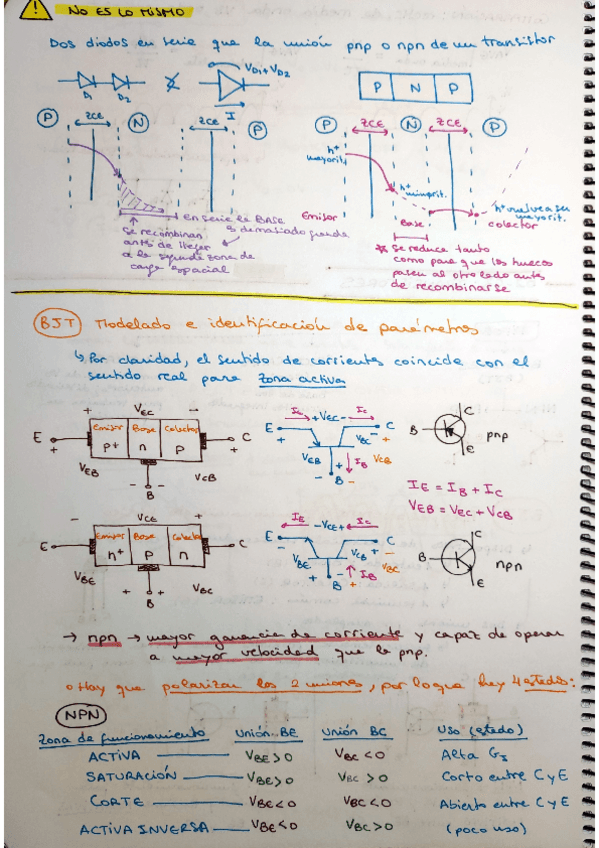 NO ES LO MISMO
Dos diodos en serie que la unión pnp o npn de un transistor
D1 D2
VD1+VD2
I
P N P
P ZCE N ZCE P
P ZCE N ZCE P
h+ mayorit.
h+ minorit.
h+ vuelve a ser mayorit.
Emisor Base colector
en serie la BASE
es demasiado grande
Se recombinan
antes de llegar
a la segunda zona de
carga espacial
* se reduce tanto
como para que los huecos
pasen al otro lado antes
de recombinarse
BJT Modelado e identificación de parámetros
↳ Por claridad, el sentido de corrientes coincide con el
sentido real para zona activa
+ VEC -
E Emisor Base Colector C
p+ n p
+ VEB - - VCB +
B
IE + VEC - IC
E C
VEB VBC VCB
IB
B
B C E pnp
IE = IB + IC
VEB = VEC + VCB
- VCE +
E Emisor Base Colector C
n+ p n
- VBE + + VBC -
B
IE - VCE + IC
E C
VBE VCB VBC
IB
B
B C E npn
→ npn → mayor ganancia de corriente y capaz de operar
a mayor velocidad que la pnp.
o Hay que polarizar las 2 uniones, por lo que hay 4 estados:
NPN
Zona de funcionamiento Unión BE Unión BC Uso (estado)
ACTIVA VBE>0 VBC<0 Alta
SATURACIÓN VBE>0 VBC>0 Corto entre C y E
CORTE VBE<0 VBC<0 Abierto entre C y E
ACTIVA INVERSA VBE<0 VBC>0 (poco uso)